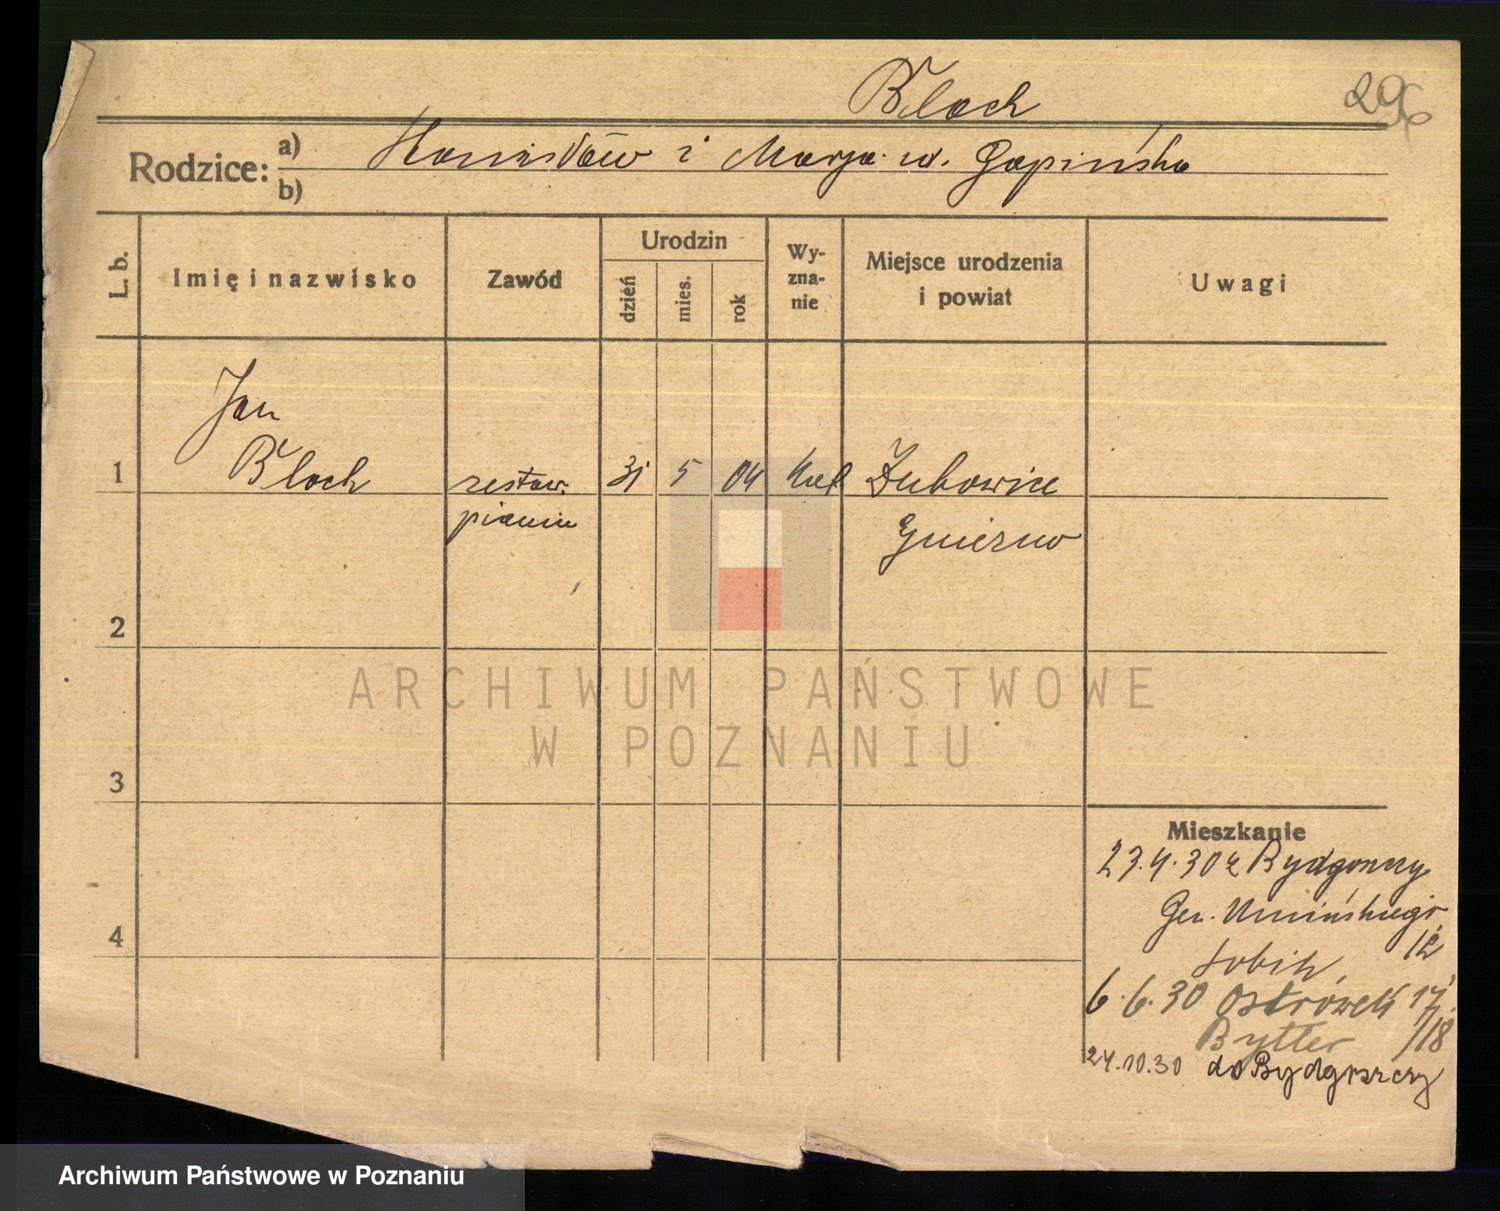 Bloch
296
Rodzice: a) Stanisław i Marja ur. Gapińska
b)
L. b.
Imię i nazwisko
Zawód
Urodzin
dzień
mies.
rok
Wy-
zna-
nie
Miejsce urodzenia
i powiat
Uwagi
Jan
1 Bloch zestaw. 31 5 04 kat Dubowice
pianin Gniezno
2
3
4
ARCHIWUM PAŃSTWOWE
W POZNANIU
Mieszkanie
23.4.30 z Bydgoszczy
Gen. Umińskiego
12
6.6.30 Ostrówek 17
/18
24.10.30 do Bydgoszczy
Archiwum Państwowe w Poznaniu